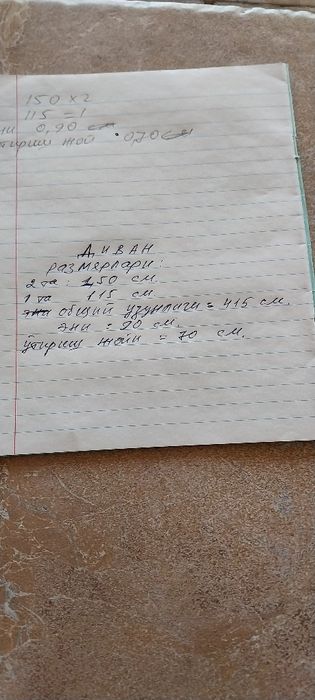 150 x 2
115 = 1
ни 0,90 см
тириш жой • 070 см
ДИВАН
размерлари:
2 та : 1,50 см.
1 та 115 см.
эни общий узунлиги = 415 см.
эни = 90 см.
ўтириш жойи = 70 см.